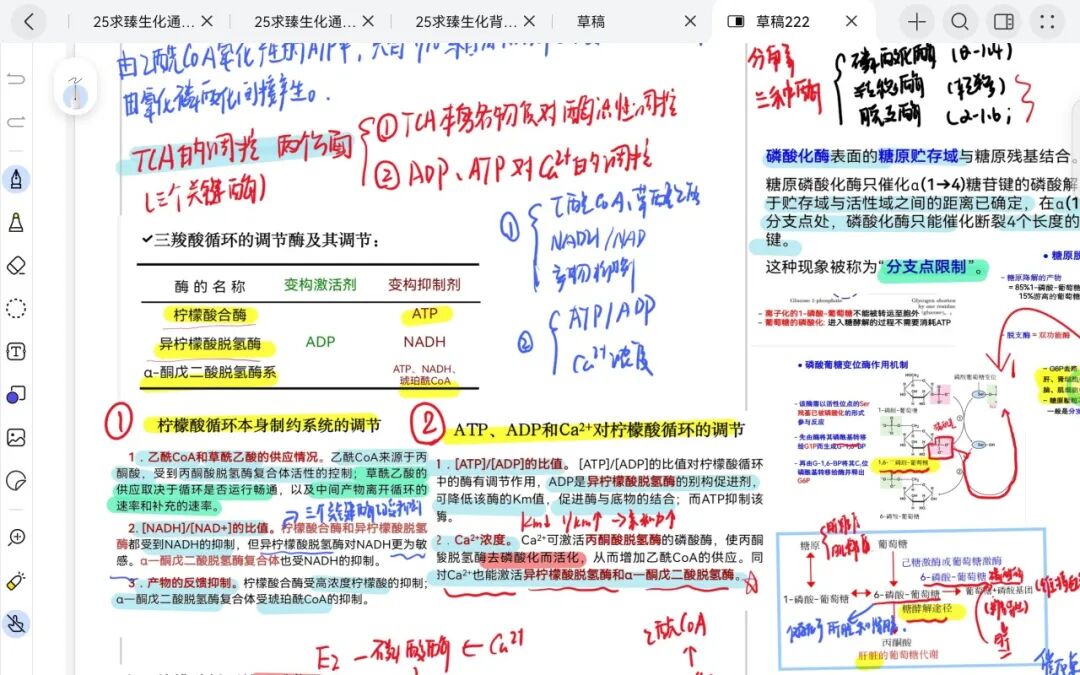 25求臻生化通…
25求臻生化通…
25求臻生化背…
草稿
草稿222
由氧化磷酸化间接产生。
TCA的调控 两个方面
(三个关键酶)
① TCA本身各物质对酶活性调控
② ADP、ATP对Ca²⁺的调控
① 乙酰CoA、草酰乙酸
NADH/NAD
产物抑制
② ATP/ADP
Ca²⁺浓度
✓三羧酸循环的调节酶及其调节：
酶 的 名 称 变构激活剂 变构抑制剂
柠檬酸合酶 ATP
异柠檬酸脱氢酶 ADP NADH
α-酮戊二酸脱氢酶系 ATP、NADH、
琥珀酰CoA
① 柠檬酸循环本身制约系统的调节
1．乙酰CoA和草酰乙酸的供应情况。乙酰CoA来源于丙
酮酸，受到丙酮酸脱氢酶复合体活性的控制；草酰乙酸的
供应取决于循环是否运行畅通，以及中间产物离开循环的
速率和补充的速率。
2．[NADH]/[NAD+]的比值。柠檬酸合酶和异柠檬酸脱氢
酶都受到NADH的抑制，但异柠檬酸脱氢酶对NADH更为敏
感。α一酮戊二酸脱氢酶复合体也受NADH的抑制。
3．产物的反馈抑制。柠檬酸合酶受高浓度柠檬酸的抑制；
α一酮戊二酸脱氢酶复合体受琥珀酰CoA的抑制。
② ATP、ADP和Ca²⁺对柠檬酸循环的调节
1．[ATP]/[ADP]的比值。[ATP]/[ADP]的比值对柠檬酸循环
中的酶有调节作用，ADP是异柠檬酸脱氢酶的别构促进剂，
可降低该酶的Km值，促进酶与底物的结合；而ATP抑制该
酶。
Km↓ 1/Km↑ → 亲和力↑
2．Ca²⁺浓度。Ca²⁺可激活丙酮酸脱氢酶的磷酸酶，使丙酮
酸脱氢酶去磷酸化而活化，从而增加乙酰CoA的供应。同
时Ca²⁺也能激活异柠檬酸脱氢酶和α一酮戊二酸脱氢酶。
E2 一磷酸酶 ← Ca²⁺
乙酰CoA
三种酶
磷酸化酶 (α-1.4)
转移酶
脱支酶 (α-1.6)
磷酸化酶表面的糖原贮存域与糖原残基结合。
糖原磷酸化酶只催化α(1→4)糖苷键的磷酸解
于贮存域与活性域之间的距离已确定，在α(1
分支点处，磷酸化酶只能催化断裂4个长度的
键。
这种现象被称为“分支点限制”。
• 糖原降解的产物
= 85%1-磷酸-葡萄糖
15%游离的葡萄糖
Glucose 1-phosphate
- 离子化的1-磷酸-葡萄糖不能被转运至胞外
- 葡萄糖的磷酸化: 进入糖酵解的过程不需要消耗ATP
- 脱支酶 = 双功能酶
• 磷酸葡糖变位酶作用机制
- 该酶需以活性位点的Ser
残基已被磷酸化的形式
参与反应
- 先由酶将其磷酸基转移
给G1P而生成G-1,6-BP
- 再由G-1,6-BP将其C₁位
磷酸基转移给酶并释出
G6P
磷酸葡萄糖变位
1-磷酸-葡萄糖
Ser
6-磷酸-葡萄糖
- G6P去
糖原
葡萄糖
己糖激酶或葡萄糖激酶
6-磷酸-葡萄糖
1-磷酸-葡萄糖
6-磷酸-葡萄糖
葡萄糖+磷酸基团
糖酵解途径
丙酮酸
肝脏的葡萄糖代谢